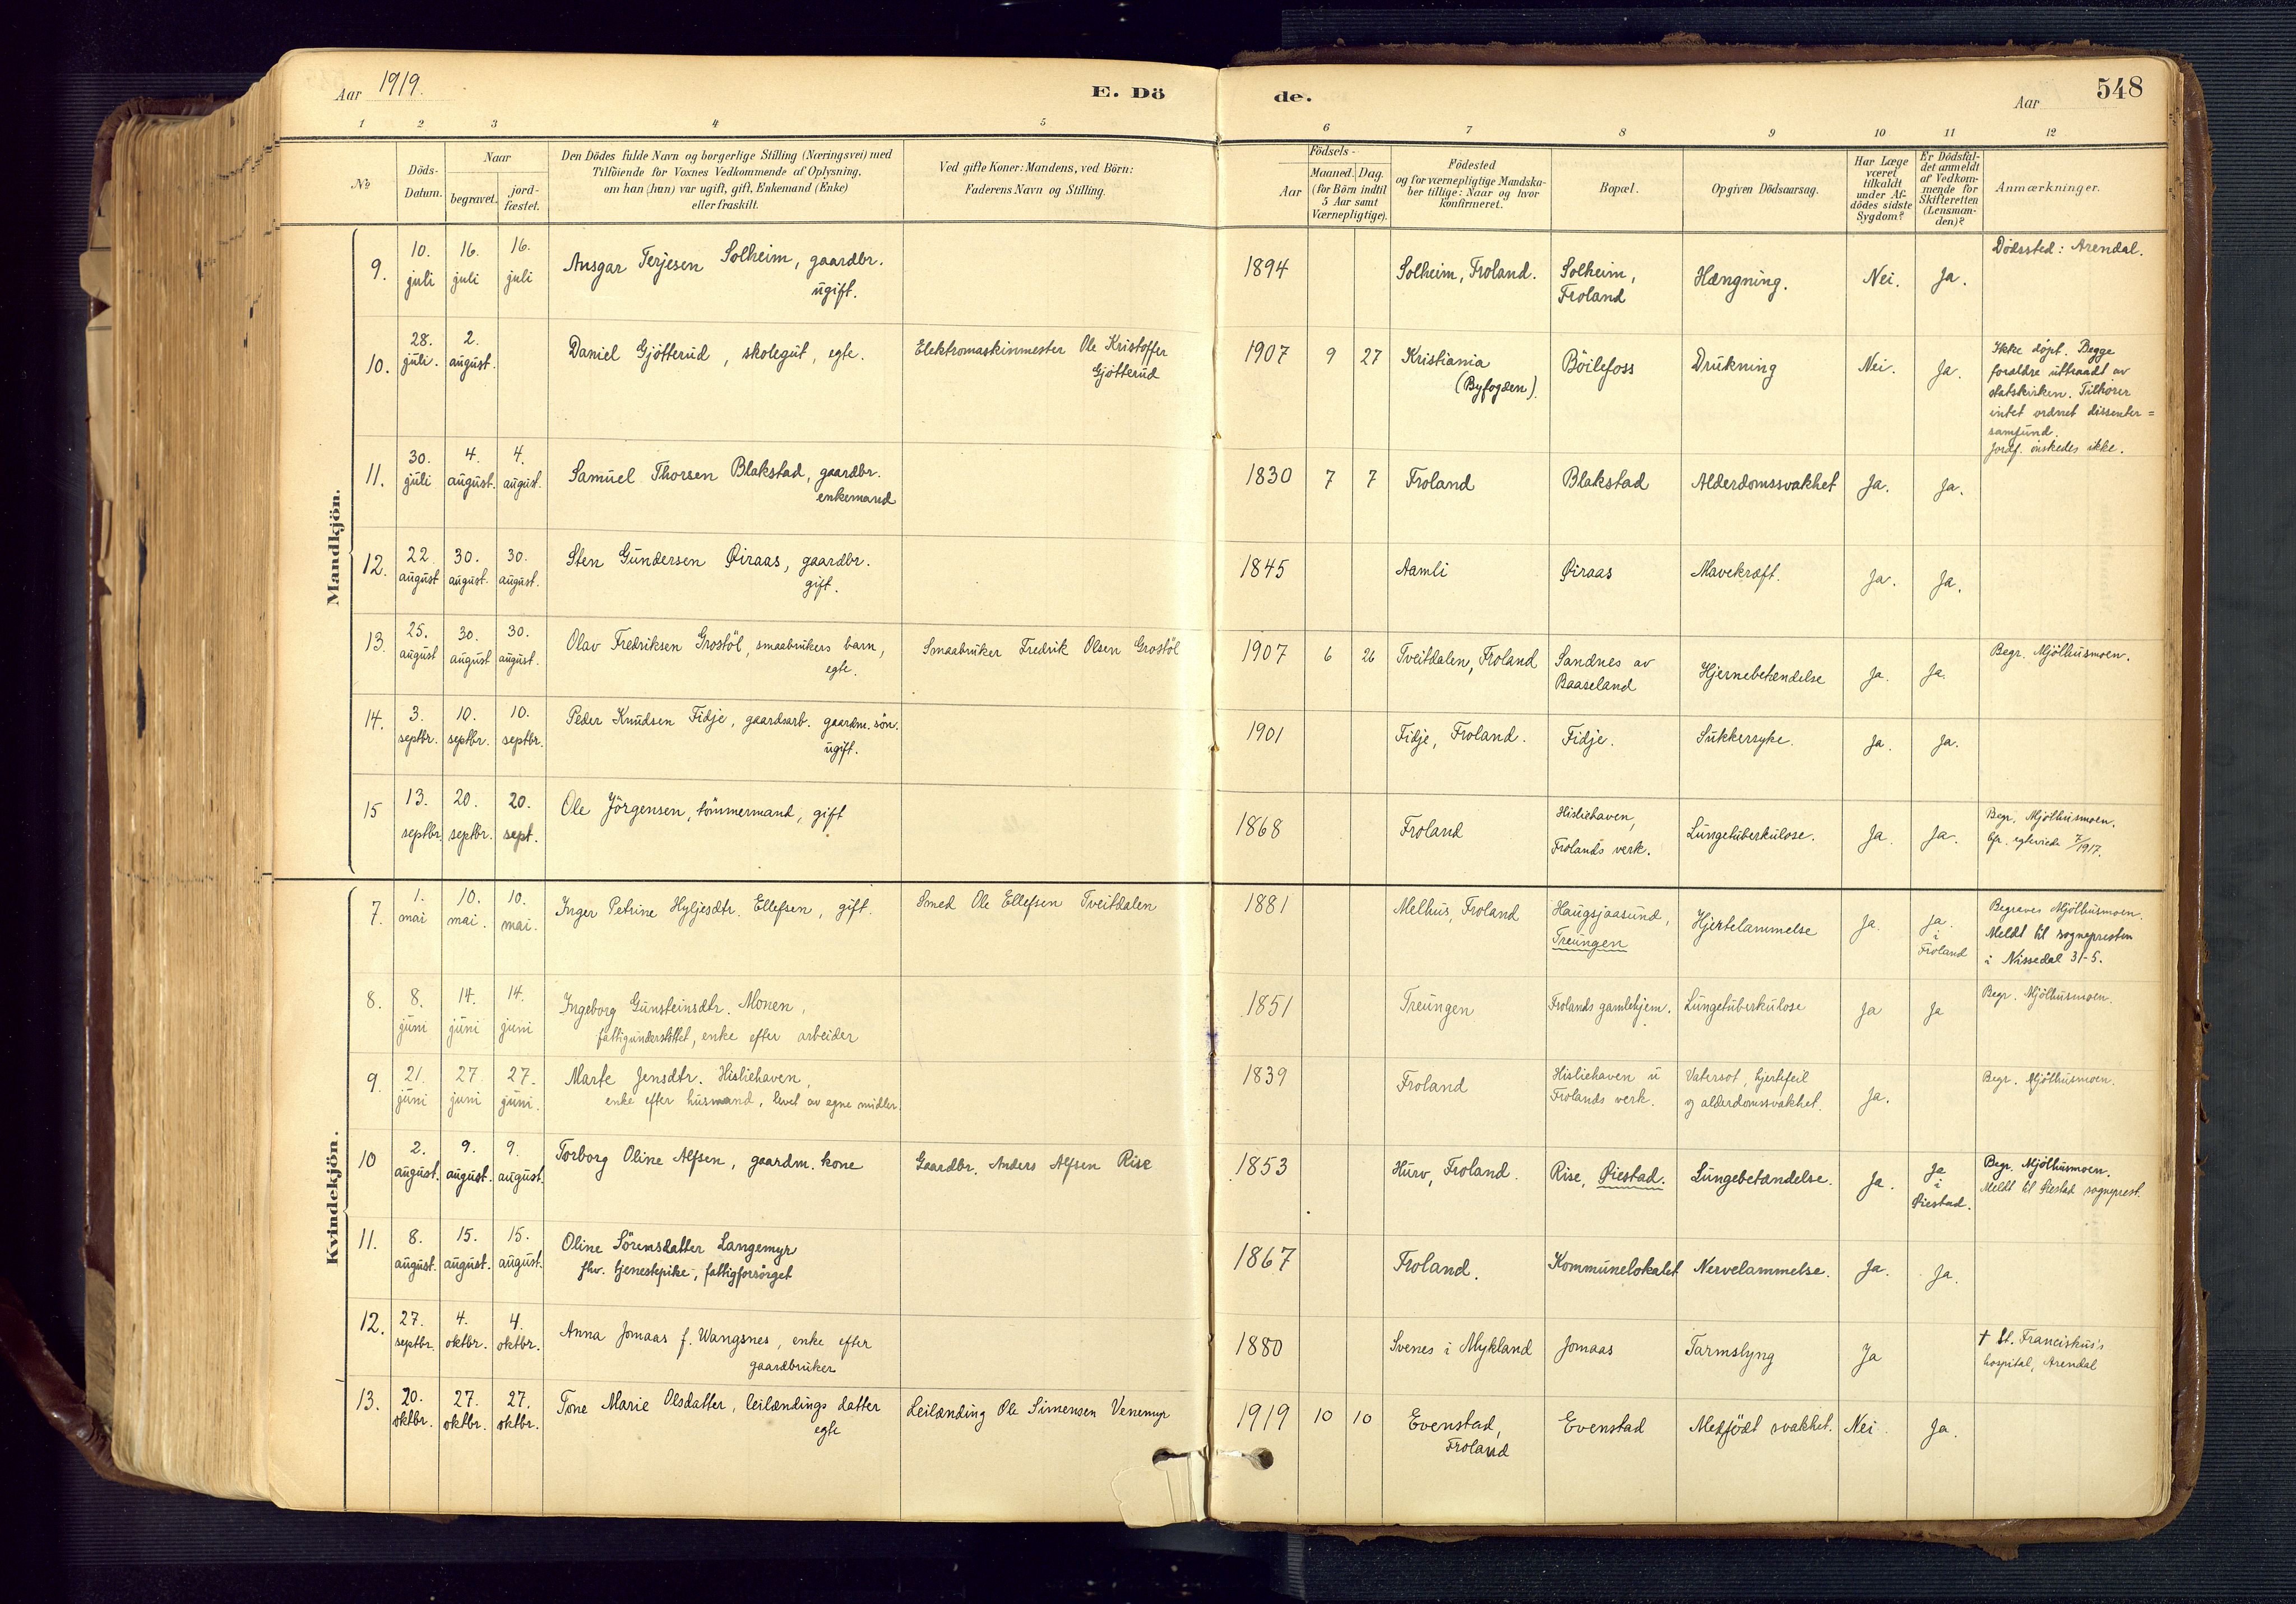 Aar 1919.
E. Dö
de.
Aar
548
1 2 3 4 5 6 7 8 9 10 11 12
No
Döds-
Datum.
Naar
begravet.
jord-
fæstet.
Den Dödes fulde Navn og borgerlige Stilling (Næringsvei) med
Tilföiende for Voxnes Vedkommende af Oplysning,
om han (hun) var ugift, gift, Enkemand (Enke)
eller fraskilt.
Ved gifte Koner: Mandens, ved Börn:
Faderens Navn og Stilling.
Födsels-
Aar
Maaned. Dag.
(for Börn indtil
5 Aar samt
Værnepligtige).
Födested
og for værnepligtige Mandska-
ber tillige: Naar og hvor
konfirmeret.
Bopæl.
Opgiven Dödsaarsag.
Har Læge
været
tilkaldt
under Af-
dödes sidste
Sygdom?
Er Dödsfal-
det anmeldt
af Vedkom-
mende for
Skifteretten
(Lensman-
den)?
Anmærkninger.
Mandkjön.
9. 10. juli 16. juli 16. juli Ansgar Terjesen Solheim, gaardbr.
ugift.
1894 Solheim, Froland. Solheim,
Froland Hængning. Nei. Ja. Dödssted: Arendal.
10. 28. juli. 2. august. Daniel Gjötterud, skolegut, egte. Elektromaskinmester Ole Kristoffer
Gjötterud
1907 9 27 Kristiania
(Byfogden). Böilefoss Drukning Nei. Ja. Ikke döpt. Begge
foraldre uttraadt av
statskirken. Tilhorer
intet ordnet dissenter=
samfund.
Jordf. önskedes ikke.
11. 30. juli 4. august. 4. august. Samuel Thorsen Blakstad, gaardbr.
enkemand
1830 7 7 Froland Blakstad Alderdomssvakhet Ja. Ja.
12. 22 august 30. august. 30. august. Sten Gundersen Øiraas, gaardbr.
gift.
1845 Aamli Øiraas Mavekræft. Ja. Ja.
13. 25. august 30. august 30. august. Olav Fredriksen Grostöl, smaabrukers barn,
egte. Smaabruker Fredrik Olsen Grostöl
1907 6 26 Tveitdalen, Froland Sandnes av
Baaseland Hjernebetændelse Ja. Ja. Begr. Mjölhusmoen.
14. 3. septbr. 10. septbr. 10. septbr. Peder Knudsen Fidje, gaardsarb. gaardm. sön.
ugift.
1901 Fidje, Froland. Fidje. Sukkersyke. Ja. Ja.
15 13. septbr. 20. septbr. 20. sept. Ole Jörgensen, tömmermand, gift
1868 Froland Hisliehaven,
Frolands verk. Lungetuberkulose. Ja. Ja. Begr. Mjölhusmoen.
Cfr. egteviede 7/1917.
Kvindekjön.
7. 1. mai 10. mai. 10. mai. Inger Petrine Hyljesdtr. Ellefsen, gift. Smed Ole Ellefsen Tveitdalen
1881 Melhus, Froland Haugsjaasund,
Treungen Hjertelammelse Ja. Ja.
i
Froland Begraves Mjölhusmoen.
Meldt til sognepresten
i Nissedal 31-5.
8. 8. juni 14. juni 14. juni Ingeborg Gunsteinsdtr. Monen,
fattigunderstöttet, enke efter arbeider
1851 Treungen Frolands gamlehjem. Lungetuberkulose Ja Ja Begr. Mjölhusmoen.
9. 21. juni 27 juni 27. juni. Marte Jensdtr. Hisliehaven,
enke efter husmand, levet av egne midler.
1839 Froland Hisliehaven u
Frolands verk. Vatersot, hjertefeil
og alderdomssvakhet. Ja. Begr. Mjölhusmoen.
10 2. august. 9. august. 9. august. Torborg Oline Alfsen, gaardm. kone Gaardbr. Anders Alfsen Rise
1853 Hurv, Froland. Rise, Øiestad. Lungebetændelse. Ja. Ja
i
Øiestad. Begr. Mjölhusmoen.
Meldt til Øiestad sogneprest.
11. 8. august. 15. august. 15. august. Oline Sörensdatter Langemyr
fhv. tjenestepike, fattigforsörget
1867 Froland. Kommunelokalet Nervelammelse. Ja. Ja.
12. 27. septbr. 4. oktbr. 4. oktbr. Anna Jomaas f. Wangsnes, enke efter
gaardbruker
1880 Svenes i Mykland Jomaas Tarmslyng Ja † St. Franciskus's
hospital, Arendal
13. 20. oktbr. 27. oktbr. 27. oktbr. Tone Marie Olsdatter, leilændings datter
egte Leilænding Ole Simensen Venemyr
1919 10 10 Evenstad,
Froland Evenstad Medfödt svakhet. Nei Ja.